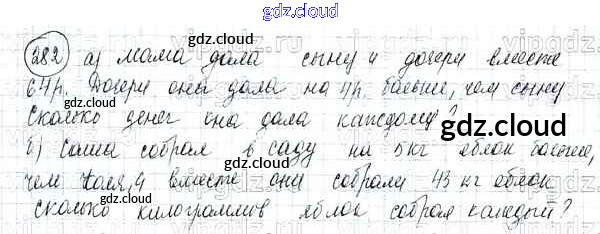 gdz.cloud
282 а) Мама дала сыну и дочери вместе
64 р. Дочери она дала на 4 р. больше, чем сыну
Сколько денег она дала каждому?
б) Саша собрал в саду на 5 кг яблок больше,
чем Коля, а вместе они собрали 43 кг яблок
сколько килограммив яблок собрал каждый?
gdz.cloud
gdz.cloud
gdz.cloud
gdz.cloud
gdz.cloud